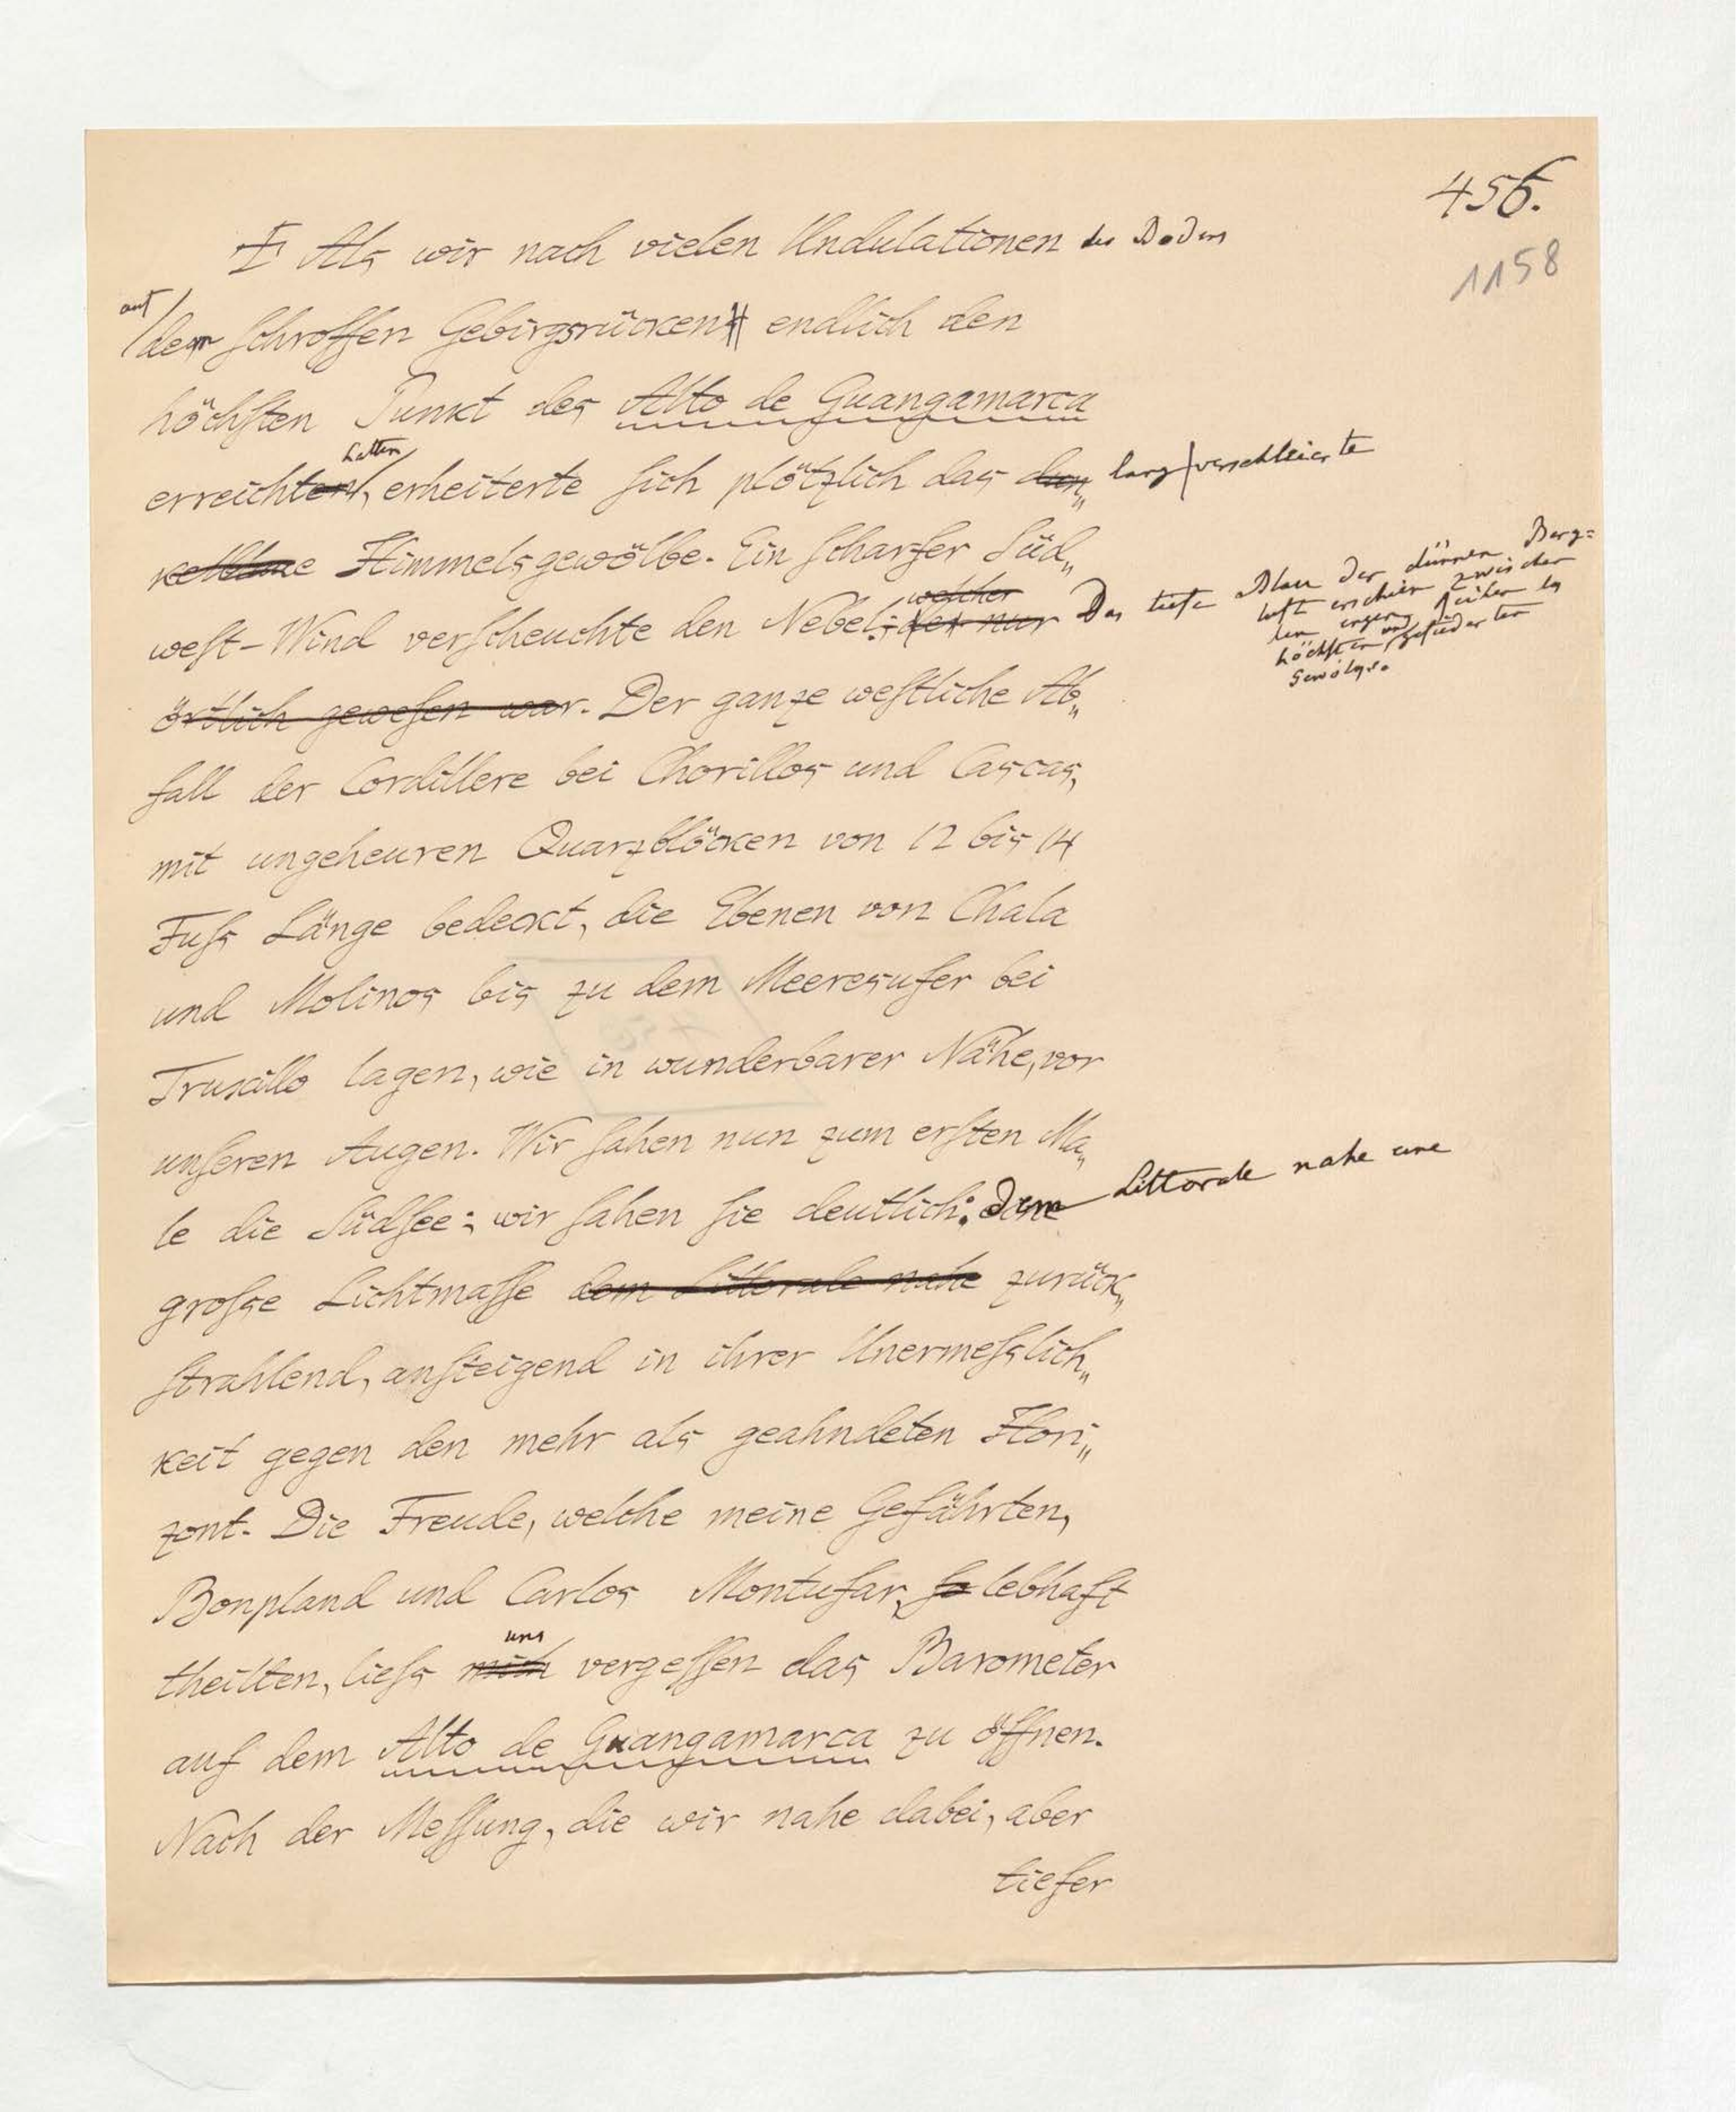 456.
1158
Als wir nach vielen Undulationen des Bodens
auf
dem schroffen Gebirgsrücken endlich den
höchsten Punkt des Alto de Guangamarca
hatten
erreichten, erheiterte sich plötzlich das dun„ lang verschleierte
kelblaue Himmelsgewölbe. Ein scharfer Süd„
welcher
west-Wind verscheuchte den Nebel, der nur Das tiefe Blau der dünnen Berg=
luft erschien zwischen
den engen Reihen des
höchsten und gefiederten
Gewölks.
örtlich gewesen war. Der ganze westliche Ab„
fall der Cordillere bei Chorillos und Cascas,
mit ungeheuren Quarzblöcken von 12 bis 14
Fuss Länge bedeckt, die Ebenen von Chala
und Molinos bis zu dem Meeresufer bei
Truxillo lagen, wie in wunderbarer Nähe, vor
unseren Augen. Wir sahen nun zum ersten Ma„
le die Südsee; wir sahen sie deutlich: dem Littorale nahe eine
grosse Lichtmasse dem Littorale nahe zurück„
strahlend, ansteigend in ihrer Unermesslich„
keit gegen den mehr als geahndeten Hori„
zont. Die Freude, welche meine Gefährten,
Bonpland und Carlos Montufar, so lebhaft
uns
theilten, liess mich vergessen das Barometer
auf dem Alto de Guangamarca zu öffnen.
Nach der Messung, die wir nahe dabei, aber
tiefer